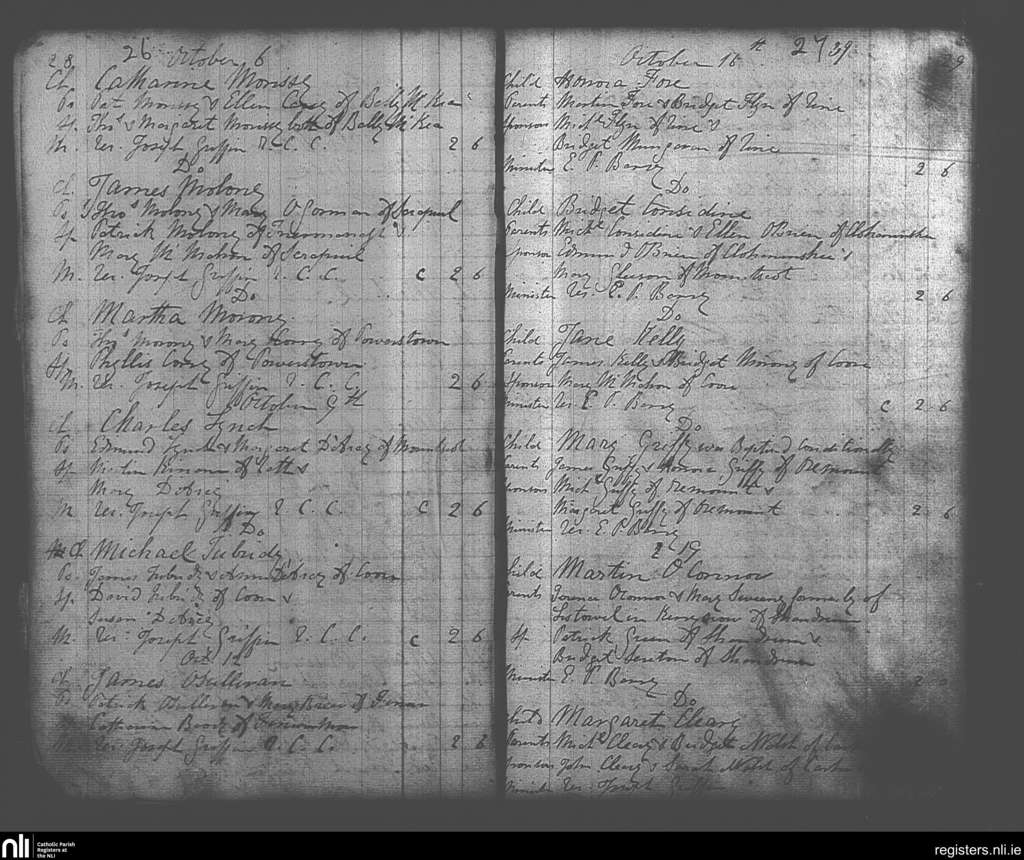 28 26 October 6
Ch Catharine Morissy
Ps Pat Morissy & Ellen Carey of Belly Mc Kea
Sp. Thos & Margaret Morissy both of Belly Mc Kea
M. Rev. Joseph Griffin R. C. C. 2 6
Do
Ch. James Molony
Ps Thos Molony & Mary O Gorman of Scrapuil
Sp Patrick Molony of &
Mary Mc Mahon of Scrapuil
M. Rev. Joseph Griffin R. C. C. C 2 6
Do
Ch Martha Morony
Ps Thos Morony & Mary Corry of Powerstown
Sp Phyllis Corry of Powerstown
M. Rev. Joseph Griffin R. C. C. 2 6
October 9th
Ch Charles Lynch
Ps Edmund Lynch & Margaret D'Arcy of
Sp. Martin of &
Mary D'Arcy
M Rev. Joseph Griffin R. C. C. C 2 6
Do
Ch Michael Tubridy
Ps. James Tubridy & Anne D'Arcy of Coore
Sp. David Tubridy of Coore &
Susan D'Arcy
M. Rev. Joseph Griffin R. C. C. C 2 6
Oct. 12
Ch James O'Sullivan
Ps Patrick O'Sullivan & Mary of
Catherine of
M. Rev. Joseph Griffin R. C. C. 2 6
October 16th 27 39 29
Child Honora Fore
Parents Martin Fore & Bridget Flyn of
Sponsors Michl Flyn of &
Bridget of
Minister E. P. Barry 2 6
Do
Child Bridget Considine
Parents Michl Considine & Ellen O'Brien of
Sponsors Edmund O'Brien of &
Mary Gleeson of
Minister Rev. E. P. Barry 2 6
Do
Child Jane Kelly
Parents James Kelly & Bridget Morony of Coore
Sponsor Mary Mc Mahon of Coore
Minister Rev E. P. Barry C 2 6
Do
Child Mary Griffy was Baptized Conditionally
Parents James Griffy & Honora Griffy of Dremount
Sponsors Michl Griffy of Dremount &
Margaret Griffy of Dremount 2 6
Minister Rev. E. P. Barry
19
Child Martin O'Connor
Parents Terence O'Connor & Mary Sweeny formerly of
Listowel in Kerry now of Shandrum
Sp. Patrick Green of Shandrum &
Bridget Sexton of Shandrum
Minister E. P. Barry 2
Do
Child Margaret Cleary
Parents Michl Cleary & Bridget Welsh of
Sponsors John Cleary & Sarah Welsh of
Minister Rev. Joseph Griffin
nli Catholic Parish
Registers at
the NLI
registers.nli.ie